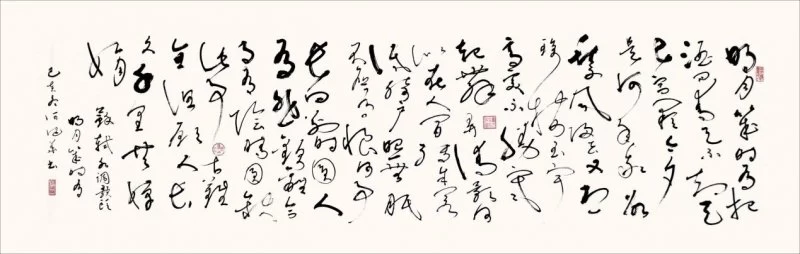 明月几时有把
酒问青天不知天
上宫阙今夕
是何年我欲
乘风归去又恐
琼楼玉宇
高处不胜寒
起舞弄清影何
似在人间转朱阁
低绮户照无眠
不应有恨何事
长向别时圆人
有悲欢离合
月有阴晴圆缺
此事古难
全但愿人长
久千里共婵
娟
苏轼水调歌头
明月几时有
己亥冬
书